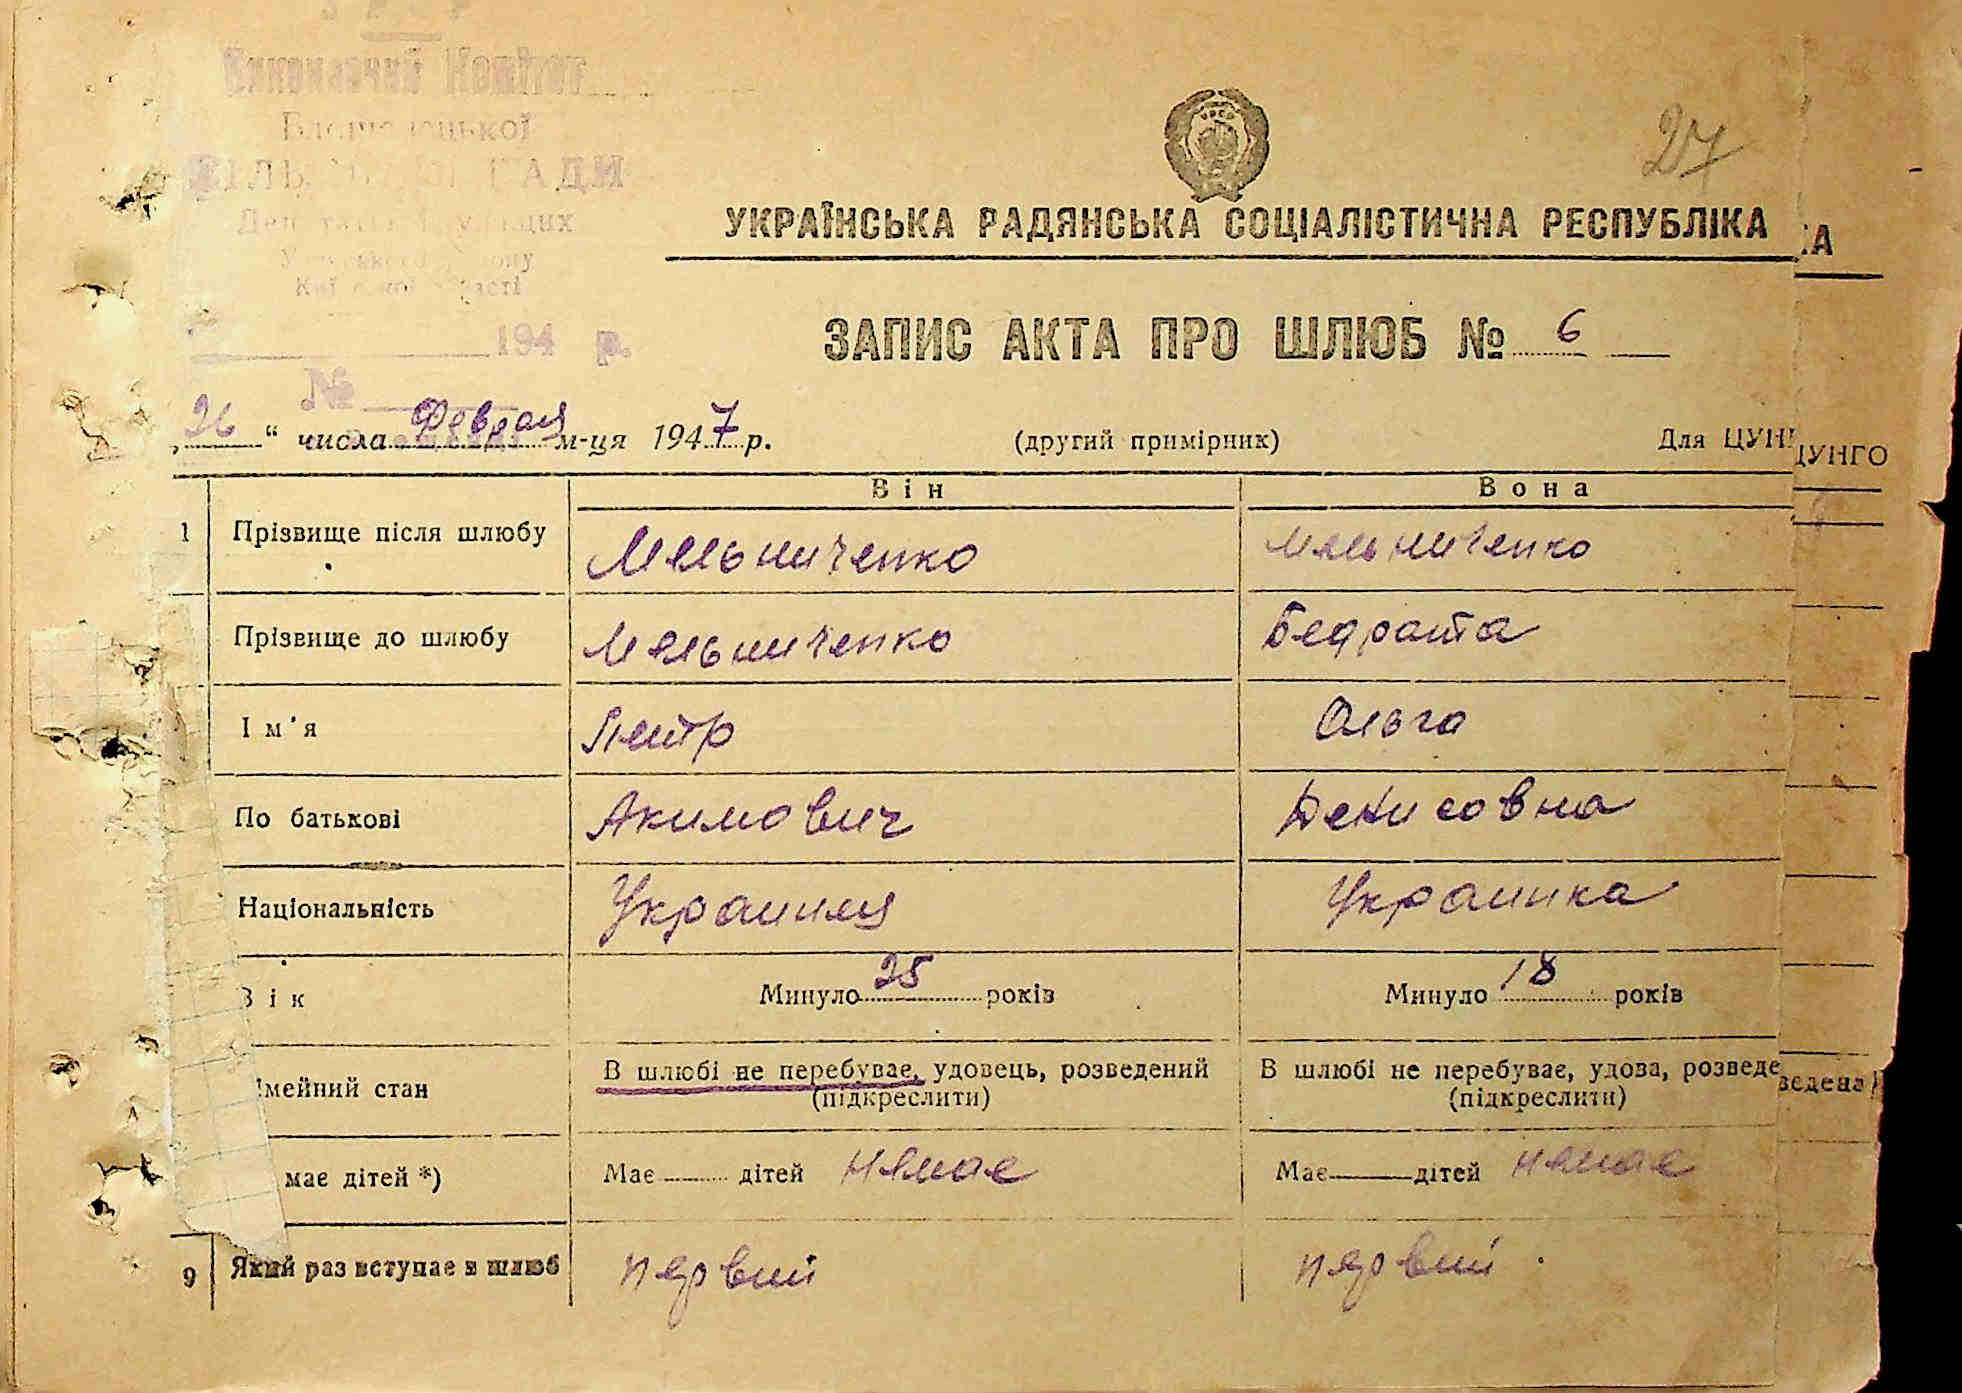 Виконавчий Комітет
27
УРСР
УКРАЇНСЬКА РАДЯНСЬКА СОЦІАЛІСТИЧНА РЕСПУБЛІКА
КА
ЗАПИС АКТА ПРО ШЛЮБ № 6
194 р.
№
„26“ числа Февраля м-ця 1947 р.
(другий примірник)
Для ЦУН
ЦУНГО
Він
Вона
1 Прізвище після шлюбу Мельниченко Мельниченко
Прізвище до шлюбу Мельниченко Бедрата
Ім'я Петр Ольга
По батькові Акимович Денисовна
Національність Украинец Украинка
Вік Минуло 25 років Минуло 18 років
імейний стан В шлюбі не перебуває, удовець, розведений В шлюбі не перебуває, удова, розведе
ведена
(підкреслити) (підкреслити)
має дітей *) Має дітей немає Має дітей немає
9 Який раз вступає в шлюб первий первий